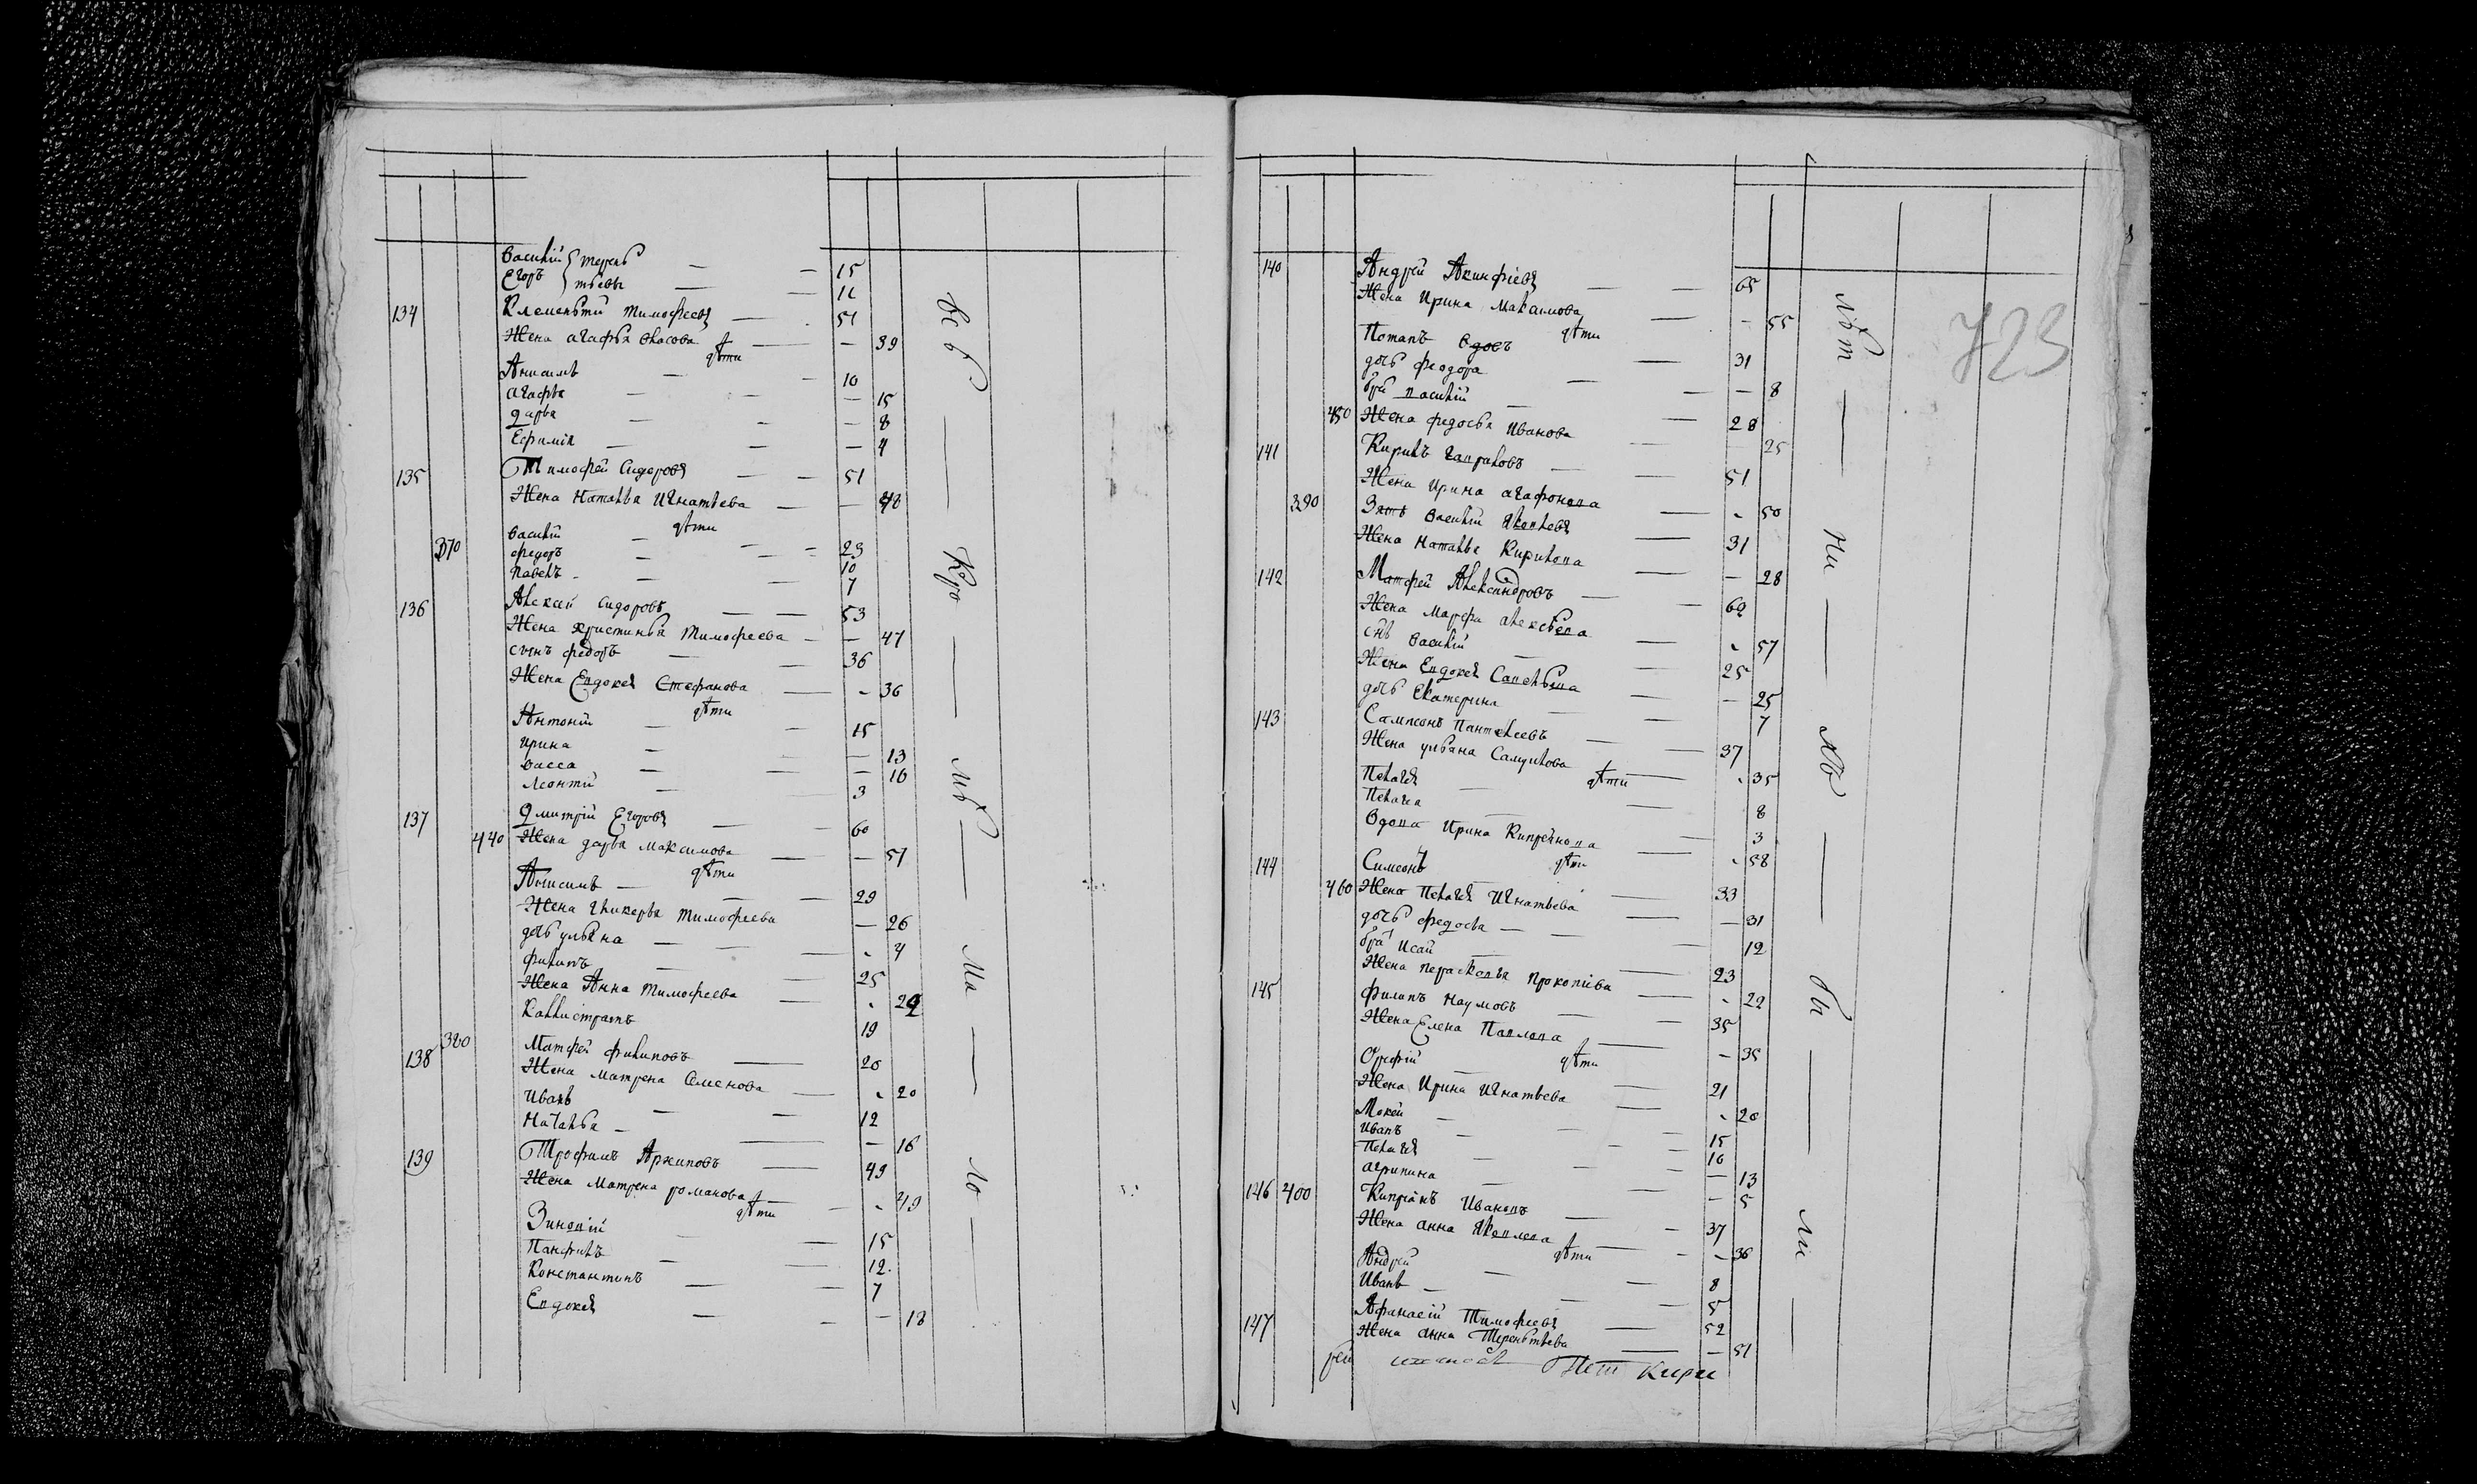 Василій Терень 15
Егоръ тьевы 11
134 Клементий Тимофеевъ 51
Жена агафья Власова 39
дѣти
Анисимъ 10
агафья 15
дарья 8
Ефимія 4
135 Тимофей Сидоровъ 51
Жена Наталья Игнатьева 48
дѣти
Василій 23
370 федоръ 10
павелъ 7
136 Алексей Сидоровъ 53
Жена христинья Тимофеева 47
сынъ федоръ 36
Жена Евдокея Стефанова 36
дѣти
Антоній 15
ирина 13
васса 10
леонтій 3
137 Дмитрій Егоровъ 60
440 Жена дарья Максимова 57
дѣти
Анисимъ 29
Жена гликерья Тимофеева 26
дочь ульяна 4
филипъ 25
Жена Анна Тимофеева 24
Каллистратъ 19
138 380 Матфей филиповъ 20
Жена Матрена Семенова 20
Иванъ 12
Наталья 16
139 Трофимъ Архиповъ 49
Жена Матрена романова 49
дѣти
Зиновій 15
Панфилъ 12
Константинъ 7
Евдокея 18
Всѣ Кро мѣ Ма ло
140 Андрей Акинфіевъ 65
Жена Ирина Максимова 55
дѣти
Потапъ вдовъ 31
дочь феодора 8
бра василій 28
450 Жена федосья Иванова 25
141 Кирилъ гавриловъ 51
Жена Ирина агафонова 50
390 Зять Василій Яковлевъ 31
Жена Наталья Кирилова 28
142 Матфей Александровъ 62
Жена Марфа алексѣева 57
снъ Василій 25
Жена Евдокея Савельева 25
дочь Екатерина 7
143 Сампсонъ Пантелеевъ 37
Жена ульяна Самуилова 35
дѣти
Пелагея 8
Пелагея 3
Вдова Ирина Кипреянова 58
дѣти
144 Симеонъ 33
460 Жена Пелагея Игнатьева 31
дочь федосья 12
бра Исай 23
Жена Перасковья Прокопіева 22
145 филипъ Наумовъ 35
Жена Елена Павлова 35
дѣти
Орефій 21
Жена Ирина Игнатьева 20
Мокей 15
Иванъ 10
Пелагея 13
агрипина 5
146 400 Киприанъ Ивановъ 37
Жена анна Яковлева 36
дѣти
Андрей 8
Иванъ 5
147 Афанасій Тимофеевъ 52
Жена анна Терентьева 51
Лѣт ни хъ бы ли
723
рей Пет Кири